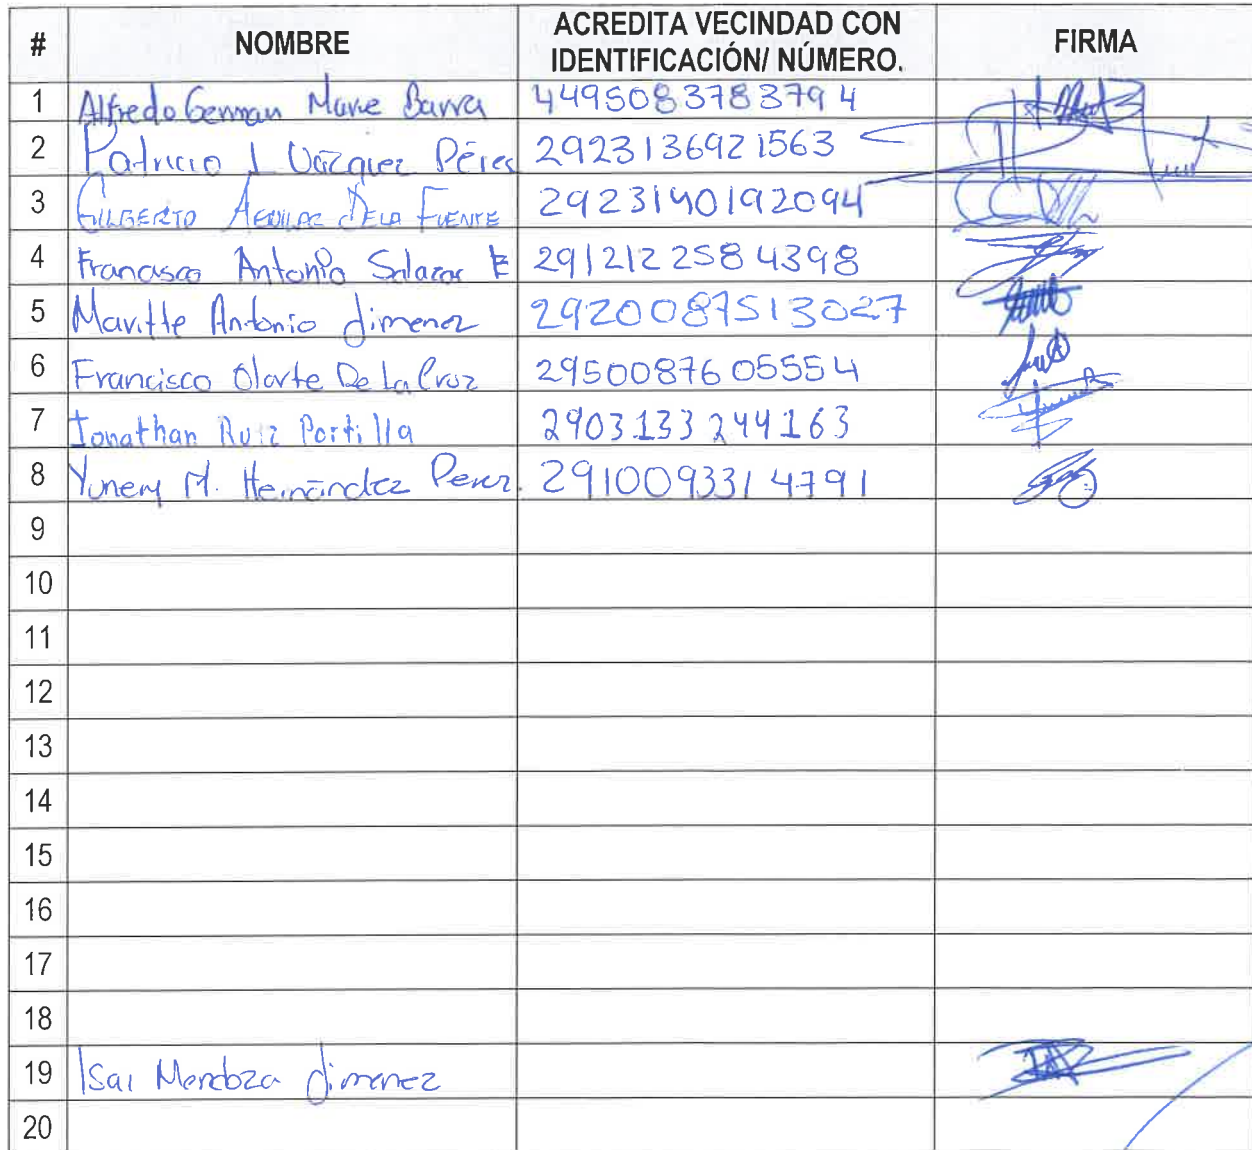 # NOMBRE ACREDITA VECINDAD CON IDENTIFICACIÓN/ NÚMERO. FIRMA
1 Alfredo German Marie Barra 4495083783794
2 Patricio J Vázquez Péres 2923136921563
3 GILBERTO AGUILAR DE LA FUENTE 2923140192094
4 Francisco Antonio Salazar E 2912122584398
5 Maritte Antonio Jimenez 2920087513027
6 Francisco Olarte De La Cruz 2950087605554
7 Jonathan Ruiz Portilla 2903133244163
8 Yunery M. Hernández Perez. 2910093314791
9
10
11
12
13
14
15
16
17
18
19 Isai Mendoza Jimenez
20